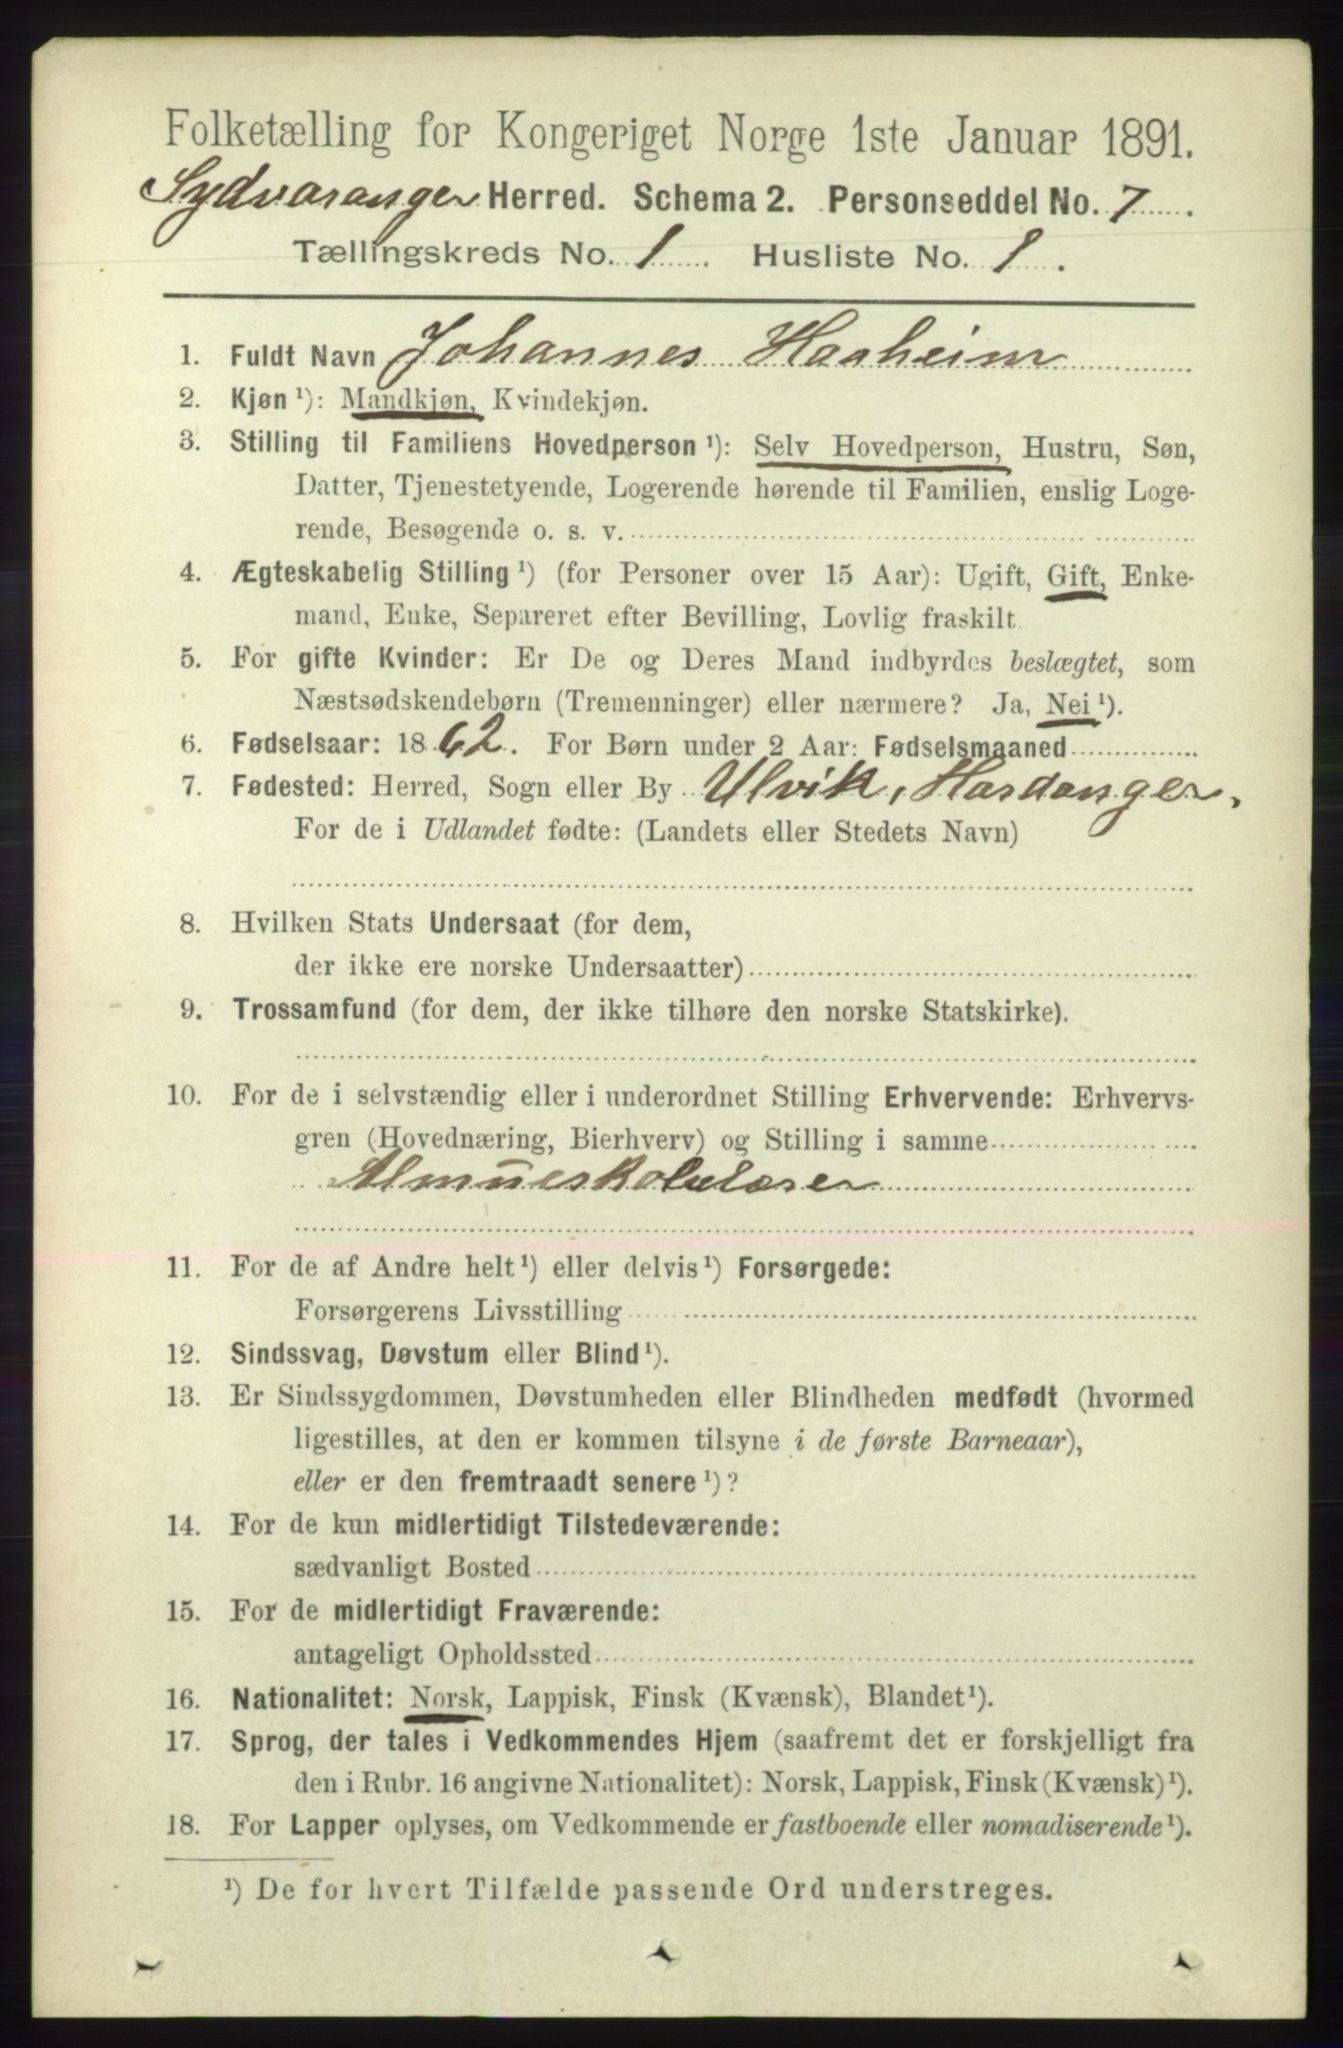 Folketælling for Kongeriget Norge 1ste Januar 1891.
Sydvaranger Herred. Schema 2. Personseddel No. 7.
Tællingskreds No. 1. Husliste No. 1.
1. Fuldt Navn Johannes Haaheim
2. Kjøn ¹): Mandkjøn, Kvindekjøn.
3. Stilling til Familiens Hovedperson ¹): Selv Hovedperson, Hustru, Søn,
Datter, Tjenestetyende, Logerende hørende til Familien, enslig Loge-
rende, Besøgende o. s. v.
4. Ægteskabelig Stilling ¹) (for Personer over 15 Aar): Ugift, Gift, Enke-
mand, Enke, Separeret efter Bevilling, Lovlig fraskilt
5. For gifte Kvinder: Er De og Deres Mand indbyrdes beslægtet, som
Næstsødskendebørn (Tremenninger) eller nærmere? Ja, Nei ¹).
6. Fødselsaar: 1862. For Børn under 2 Aar: Fødselsmaaned
7. Fødested: Herred, Sogn eller By Ulvik, Hardanger,
For de i Udlandet fødte: (Landets eller Stedets Navn)
8. Hvilken Stats Undersaat (for dem,
der ikke ere norske Undersaatter)
9. Trossamfund (for dem, der ikke tilhøre den norske Statskirke).
10. For de i selvstændig eller i underordnet Stilling Erhvervende: Erhvervs-
gren (Hovednæring, Bierhverv) og Stilling i samme
Almueskolelærer
11. For de af Andre helt ¹) eller delvis ¹) Forsørgede:
Forsørgerens Livsstilling
12. Sindssvag, Døvstum eller Blind ¹).
13. Er Sindssygdommen, Døvstumheden eller Blindheden medfødt (hvormed
ligestilles, at den er kommen tilsyne i de første Barneaar),
eller er den fremtraadt senere ¹)?
14. For de kun midlertidigt Tilstedeværende:
sædvanligt Bosted
15. For de midlertidigt Fraværende:
antageligt Opholdssted
16. Nationalitet: Norsk, Lappisk, Finsk (Kvænsk), Blandet ¹).
17. Sprog, der tales i Vedkommendes Hjem (saafremt det er forskjelligt fra
den i Rubr. 16 angivne Nationalitet): Norsk, Lappisk, Finsk (Kvænsk) ¹).
18. For Lapper oplyses, om Vedkommende er fastboende eller nomadiserende ¹).
¹) De for hvert Tilfælde passende Ord understreges.